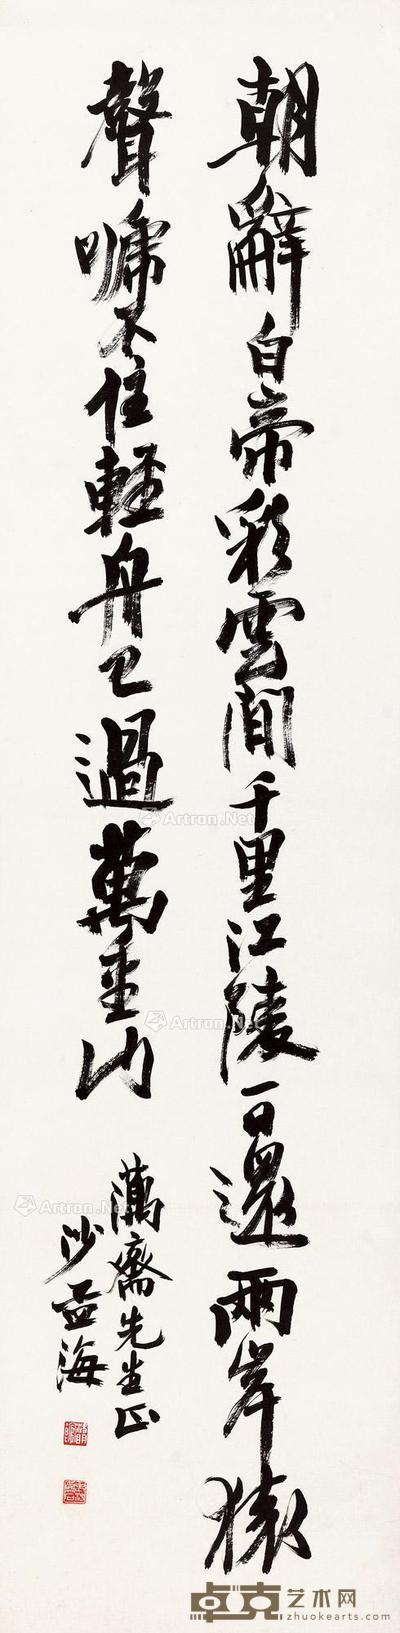 朝辭白帝彩雲間千里江陵一日還兩岸猿
聲嗁不住輕舟已過萬重山
先生正
沙孟海
Artron.Net
Artron.Net
Artron.Net
卓克艺术网
zhuokearts.com